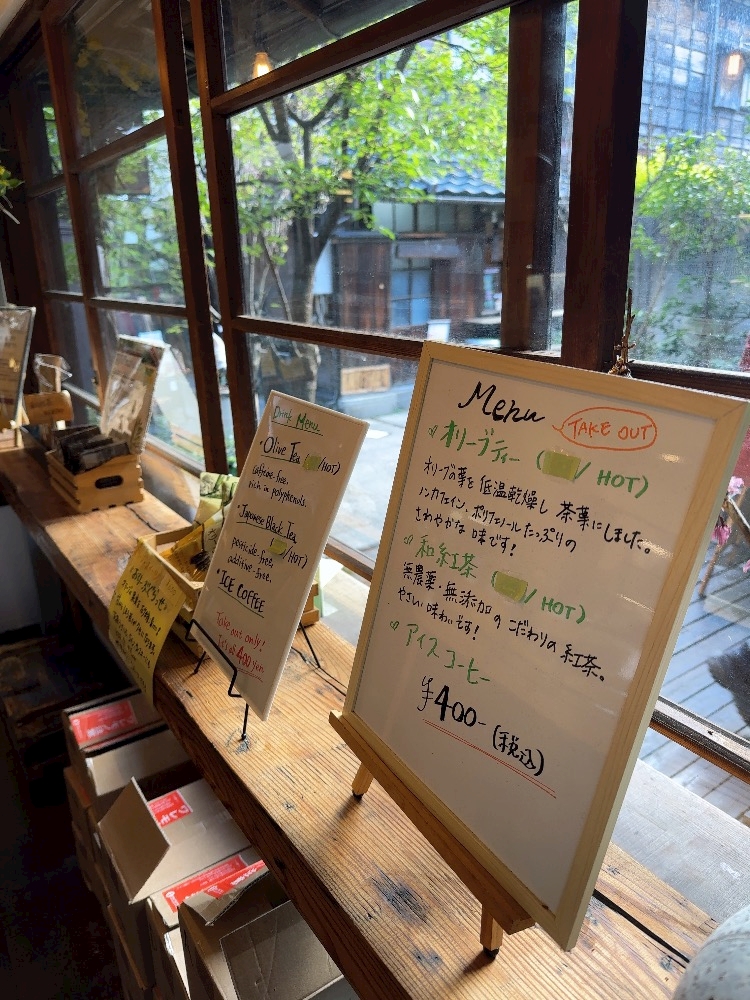 Drink Menu
・Olive Tea
( /HOT)
caffeine-free,
rich in polyphenols.
・Japanese Black Tea
( /HOT)
pesticide-free,
additive-free.
・ICE COFFEE
Take out only!
It's all 400 yen
Menu TAKE OUT
オリーブティー ( / HOT)
オリーブの葉を低温乾燥し茶葉にしました。
ノンカフェイン、ポリフェノールたっぷりの
さわやかな味です!
和紅茶 ( / HOT)
無農薬・無添加のこだわりの紅茶。
やさしい味わいです!
アイスコーヒー
¥400- (税込)